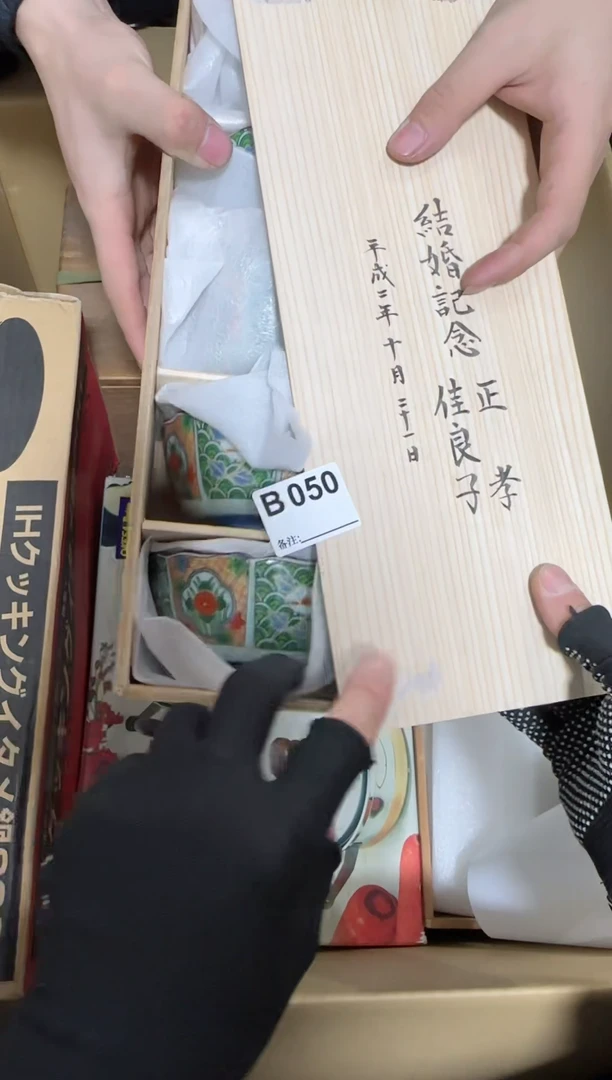 結婚記念
正孝
佳良子
平成二年十月二十一日
B 050
备注:
IHクッキング